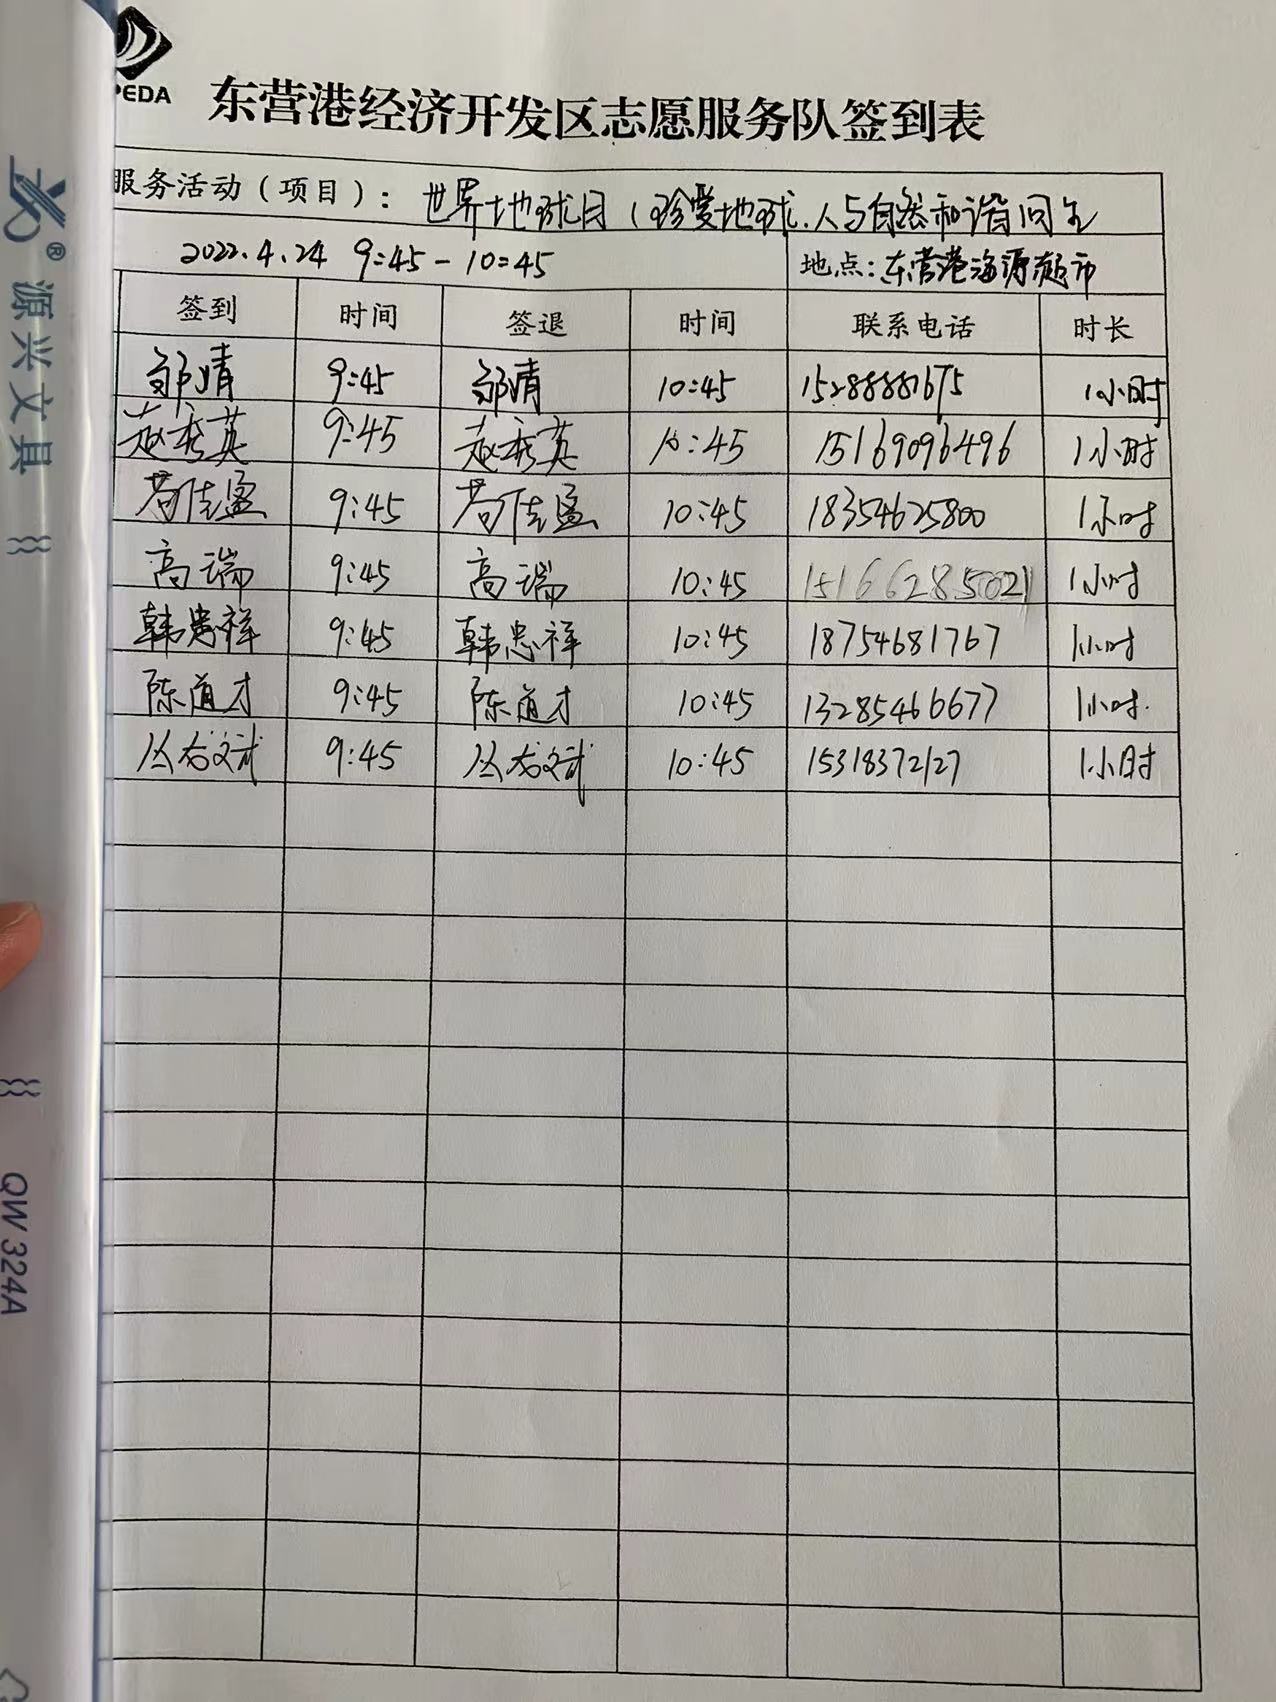 PEDA
东营港经济开发区志愿服务队签到表
服务活动（项目）： 世界地球日（珍爱地球.人与自然和谐同生
2022.4.24 9:45-10:45 地点：东营港海源超市
签到 时间 签退 时间 联系电话 时长
邹婧 9:45 邹婧 10:45 15288881675 1小时
赵秀英 9:45 赵秀英 10:45 15169096496 1小时
苟佳盈 9:45 苟佳盈 10:45 18354625800 1小时
高瑞 9:45 高瑞 10:45 15166285021 1小时
韩忠祥 9:45 韩忠祥 10:45 18754681767 1小时
陈道才 9:45 陈道才 10:45 13285466677 1小时
丛龙文武 9:45 丛龙文武 10:45 15318372127 1小时
® 源兴文具
QW324A